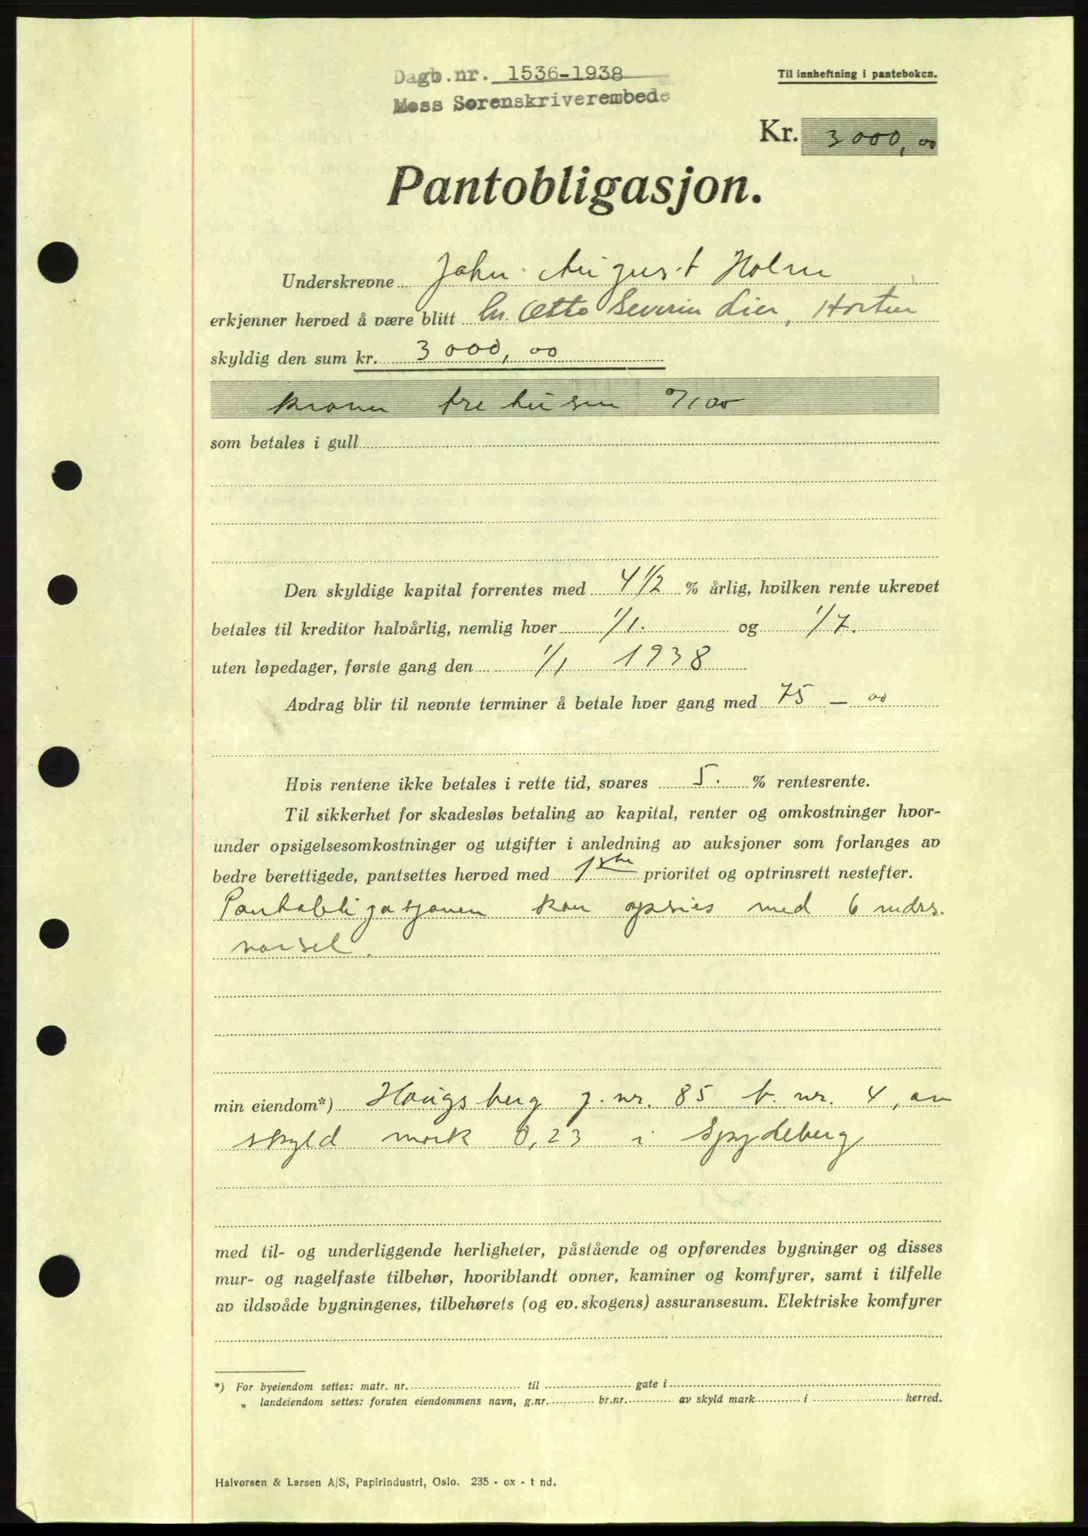 Dagb.nr. 1536-1938
Moss Sorenskriverembede
Til innheftning i panteboken.
Kr. 3000,00
Pantobligasjon.
Underskrevne John August Holm
erkjenner herved å være blitt hr. Otto Severin Lier, Horten
skyldig den sum kr. 3000,00
kroner tre tusen 0/00
som betales i gull
Den skyldige kapital forrentes med 4 1/2 % årlig, hvilken rente ukrevet
betales til kreditor halvårlig, nemlig hver 1/1. og 1/7.
uten løpedager, første gang den 1/1 1938
Avdrag blir til nevnte terminer å betale hver gang med 75 — 00
Hvis rentene ikke betales i rette tid, svares 5. % rentesrente.
Til sikkerhet for skadesløs betaling av kapital, renter og omkostninger hvor-
under opsigelsesomkostninger og utgifter i anledning av auksjoner som forlanges av
bedre berettigede, pantsettes herved med 1ste prioritet og optrinsrett nestefter.
Pantobligasjonen kan opsies med 6 mdrs.
varsel.
min eiendom*) Haugsberg g. nr. 85 b. nr. 4, av
skyld mark 0,23 i Spydeberg
med til- og underliggende herligheter, påstående og opførendes bygninger og disses
mur- og nagelfaste tilbehør, hvoriblandt ovner, kaminer og komfyrer, samt i tilfelle
av ildsvåde bygningenes, tilbehørets (og ev. skogens) assuransesum. Elektriske komfyrer
*) For byeiendom settes: matr. nr. til gate i
„ landeiendom settes: foruten eiendommens navn, g.nr. br.nr. av skyld mark i herred.
Halvorsen & Larsen A/S, Papirindustri, Oslo. 235 - ox - t nd.